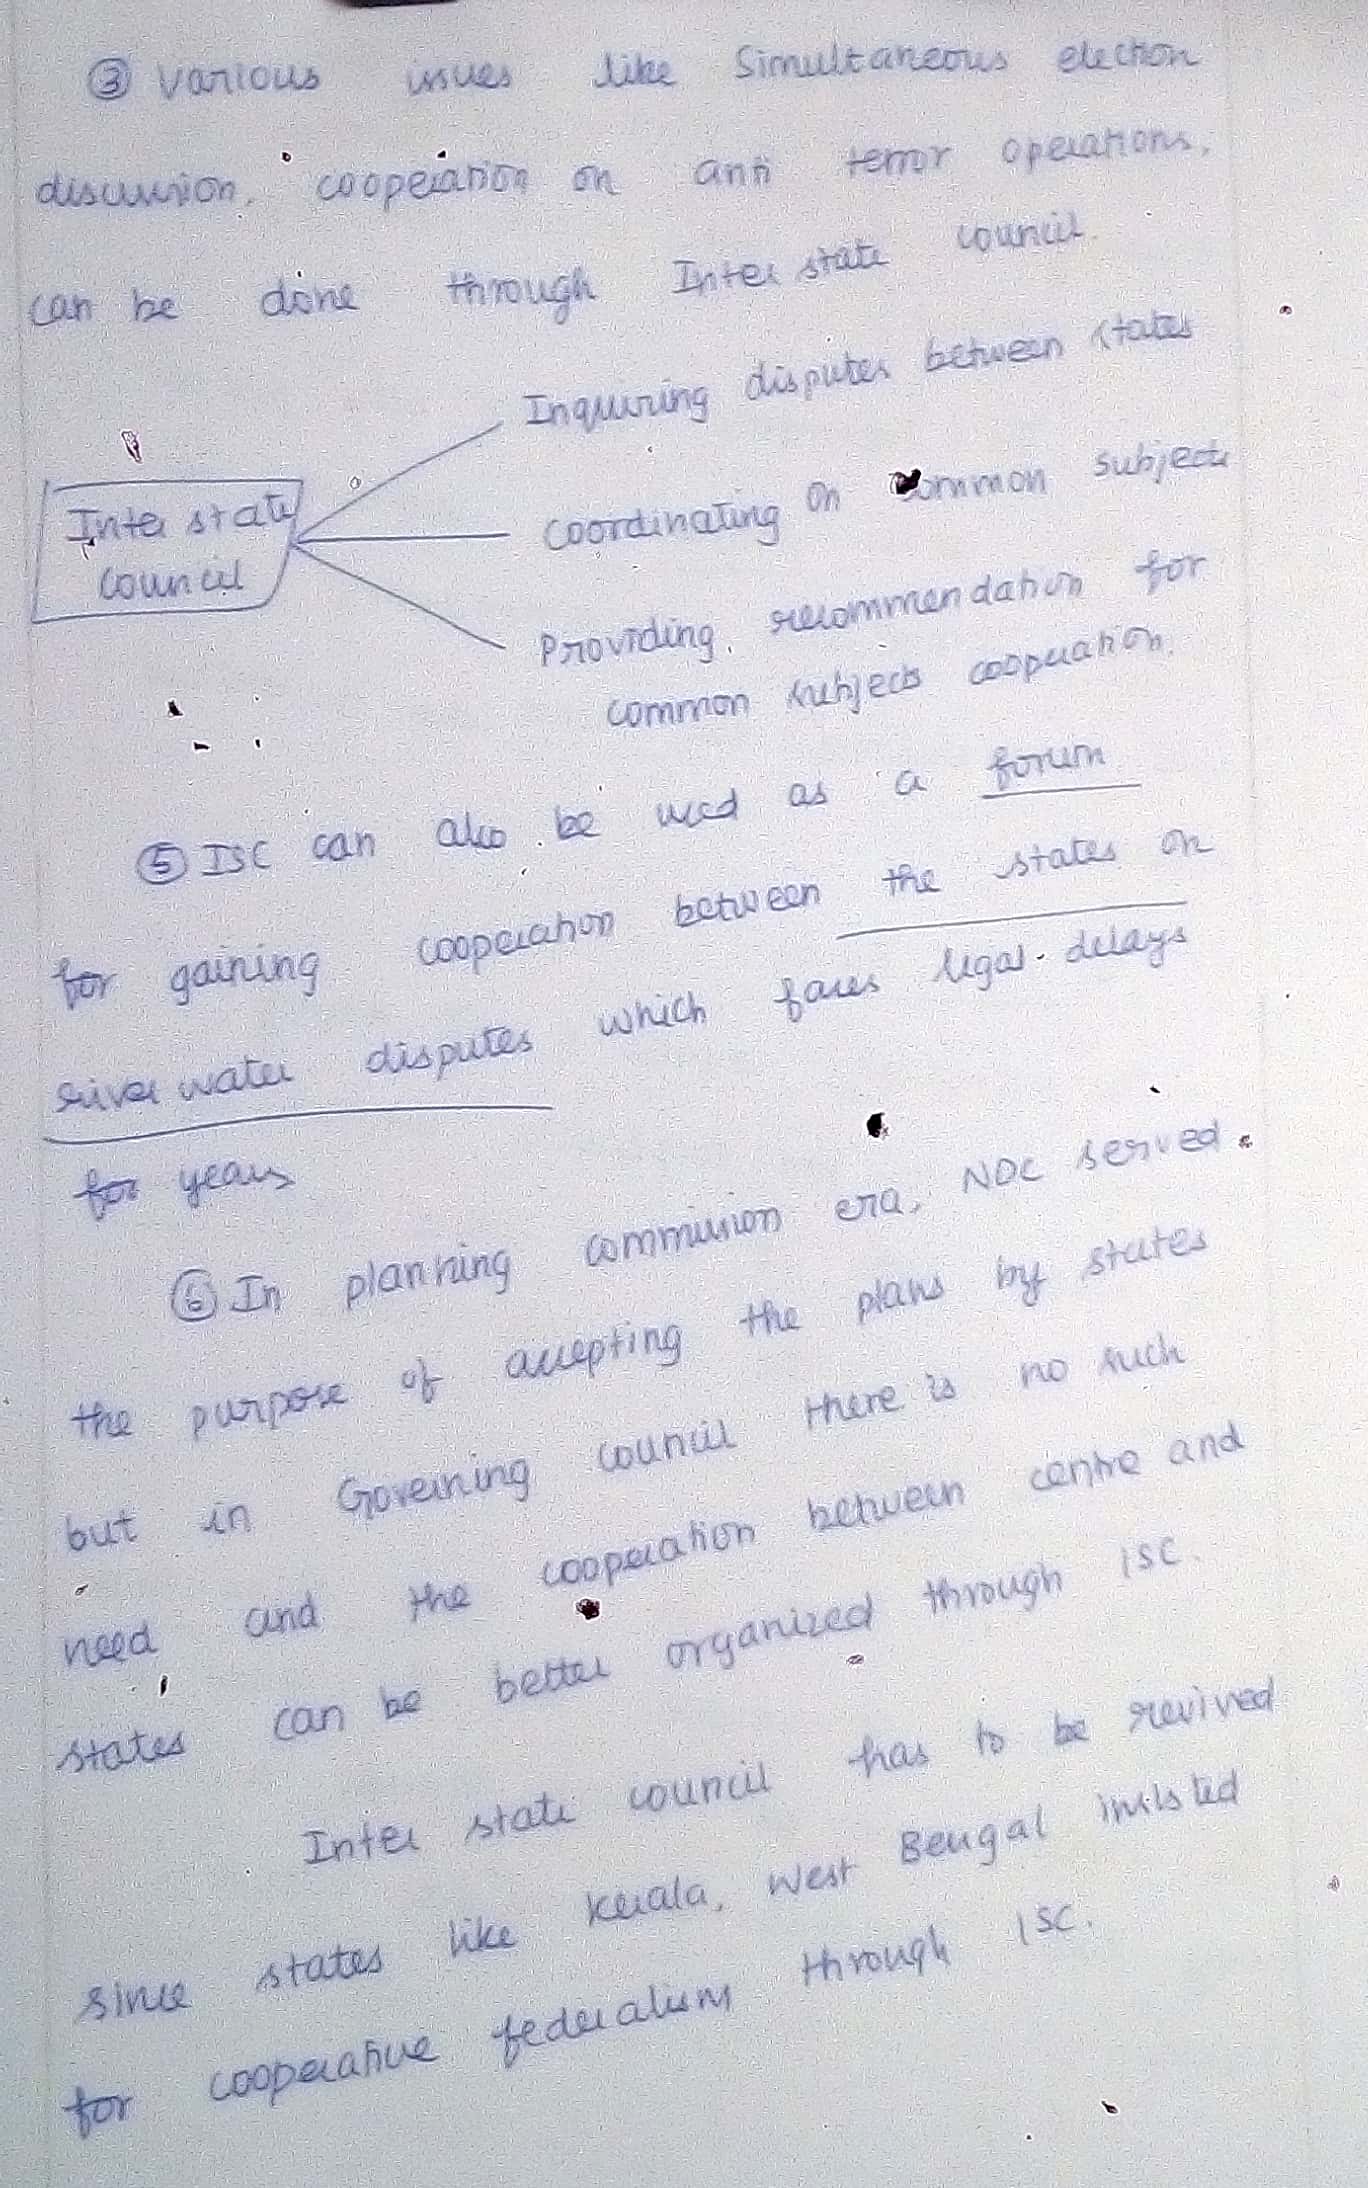 ③ Various issues like Simultaneous election
discussion, cooperation on anti terror operations,
can be done through Inter state council.
Inquiring disputes between states
Inter state
council
Coordinating on common subjects
Providing recommendation for
common subjects cooperation.
⑤ ISC can also be used as a forum
for gaining cooperation between the states on
river water disputes which faces legal delays
for years
⑥ In planning commission era, NDC served
the purpose of accepting the plans by states
but in Governing council there is no such
need and the cooperation between centre and
states can be better organized through ISC.
Inter state council has to be revived
since states like Kerala, West Bengal insisted
for cooperative federalism through ISC.